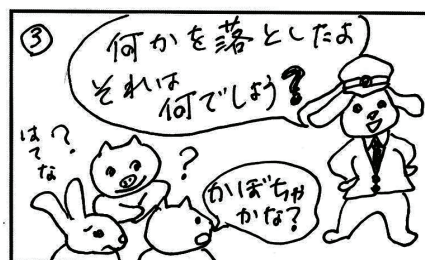 ③
何かを落としたよ
それは
何でしょう?
はてな?
?
かぼちゃ
かな?